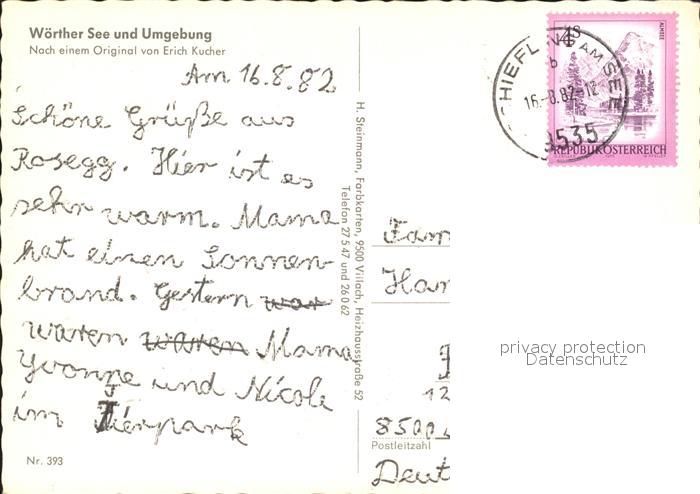 Wörther See und Umgebung
Nach einem Original von Erich Kucher
Am 16.8.82
Schöne Grüße aus
Rosegg. Hier ist es
sehr warm. Mama
hat einen Sonnen-
brand. Gestern war
waren waren Mama
Yvonne und Nicole
im Tierpark
Nr. 393
H. Steinmann, Farbkarten, 9500 Villach, Heizhausstraße 52
Telefon 27 5 47 und 26 0 62
4S
ALMSEE
SCHIEFLING AM SEE
b
16.-8.82-12
9535
REPUBLIK ÖSTERREICH
Fam
Han
12
8500
Postleitzahl
Deut
privacy protection
Datenschutz